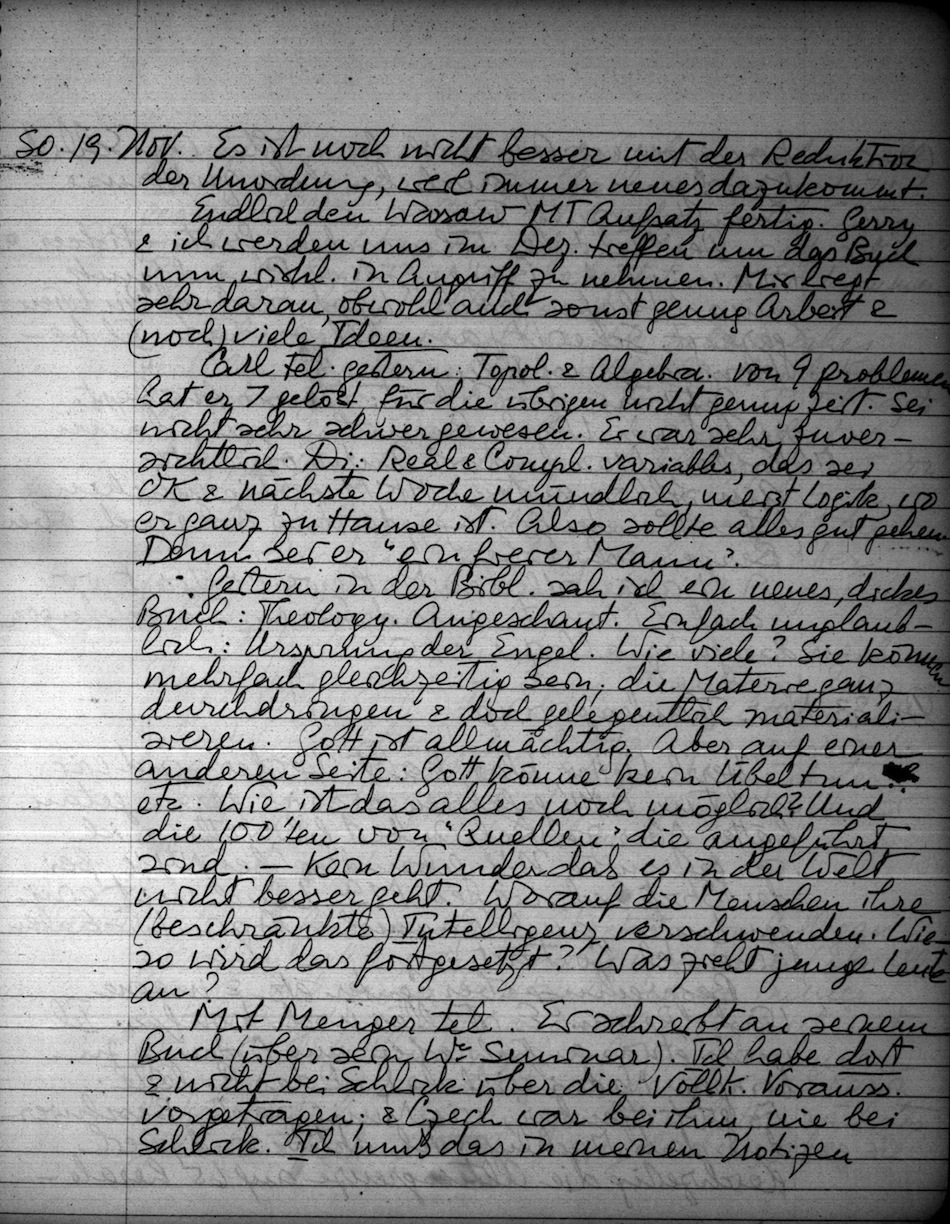 So. 19. Nov. Es ist noch nicht besser mit der Reduktion
der Unordnung, weil immer neues dazukommt.
Endlich den Warsaw MT Aufsatz fertig. Gerry
& ich werden uns im Dez. treffen um das Buch
nun wirkl. in Angriff zu nehmen. Mir liegt
sehr daran, obwohl auch sonst genug Arbeit &
(noch) viele Ideen.
Carl tel. gestern: Topol. & Algebra. Von 9 Probleme
hat er 7 gelöst für die übrigen nicht genug Zeit. Sei
nicht sehr schwer gewesen. Er war sehr zuver-
sichtlich. Di: Real & Compl. variables, das sei
OK & nächste Woche mündlich, meist Logik, wo
er ganz zu Hause ist. Also sollte alles gut gehen.
Dann sei er "ein freier Mann".
Gestern in der Bibl. sah ich ein neues, dickes
Buch: Theology. Angeschaut. Einfach unglaub-
lich: Ursprung der Engel. Wie viele? Sie können
mehrfach gleichzeitig sein, die Materie ganz
durchdringen & doch gelegentlich materiali-
sieren. Gott ist allmächtig. Aber auf einer
anderen Seite: Gott könne kein Übel tun
etc. Wie ist das alles noch möglich? Und
die 100'ten von "Quellen", die angeführt
sind. — Kein Wunder das es in der Welt
nicht besser geht. Worauf die Menschen ihre
(beschränkte) Intelligenz verschwenden. Wie-
so wird das fortgesetzt? Was zieht junge Leute
an?
Mit Menger tel. Er schreibt an seinem
Buch (über sein Wr Seminar). Ich habe dort
& nicht bei Schlick über die Vollk. Vorauss.
vorgetragen; & Czech war bei ihm, nie bei
Schlick. Ich muß das in meinen Notizen